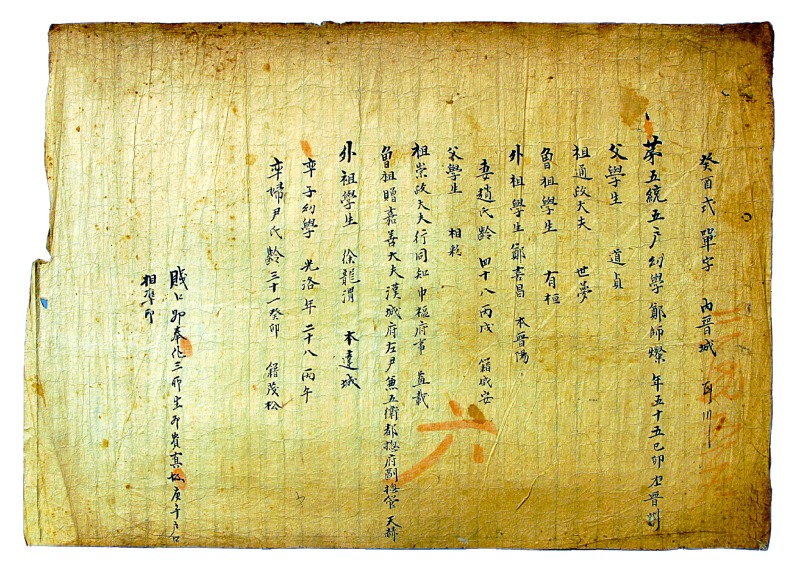 癸酉式 單字 內晉城
第五統五戶幼學鄭師燦 年五十五己卯 本晉州
父學生 道貞
祖通政大夫 世夢
曾祖學生 有桓
外祖學生鄭壽昌 本晉陽
妻趙氏齡 四十八丙戌 籍咸安
父學生 相
祖崇政大夫行同知中樞府事
曾祖贈嘉善大夫漢城府左尹兼五衛都摠府副摠管 天赫
外祖學生 徐龍渭 本達城
率子幼學 光洛年 二十八 丙午
率婦尹氏 齡三十一癸卯 籍茂松
賤口 奴奉化三所生奴貴真 庚午戶口
相準印
六